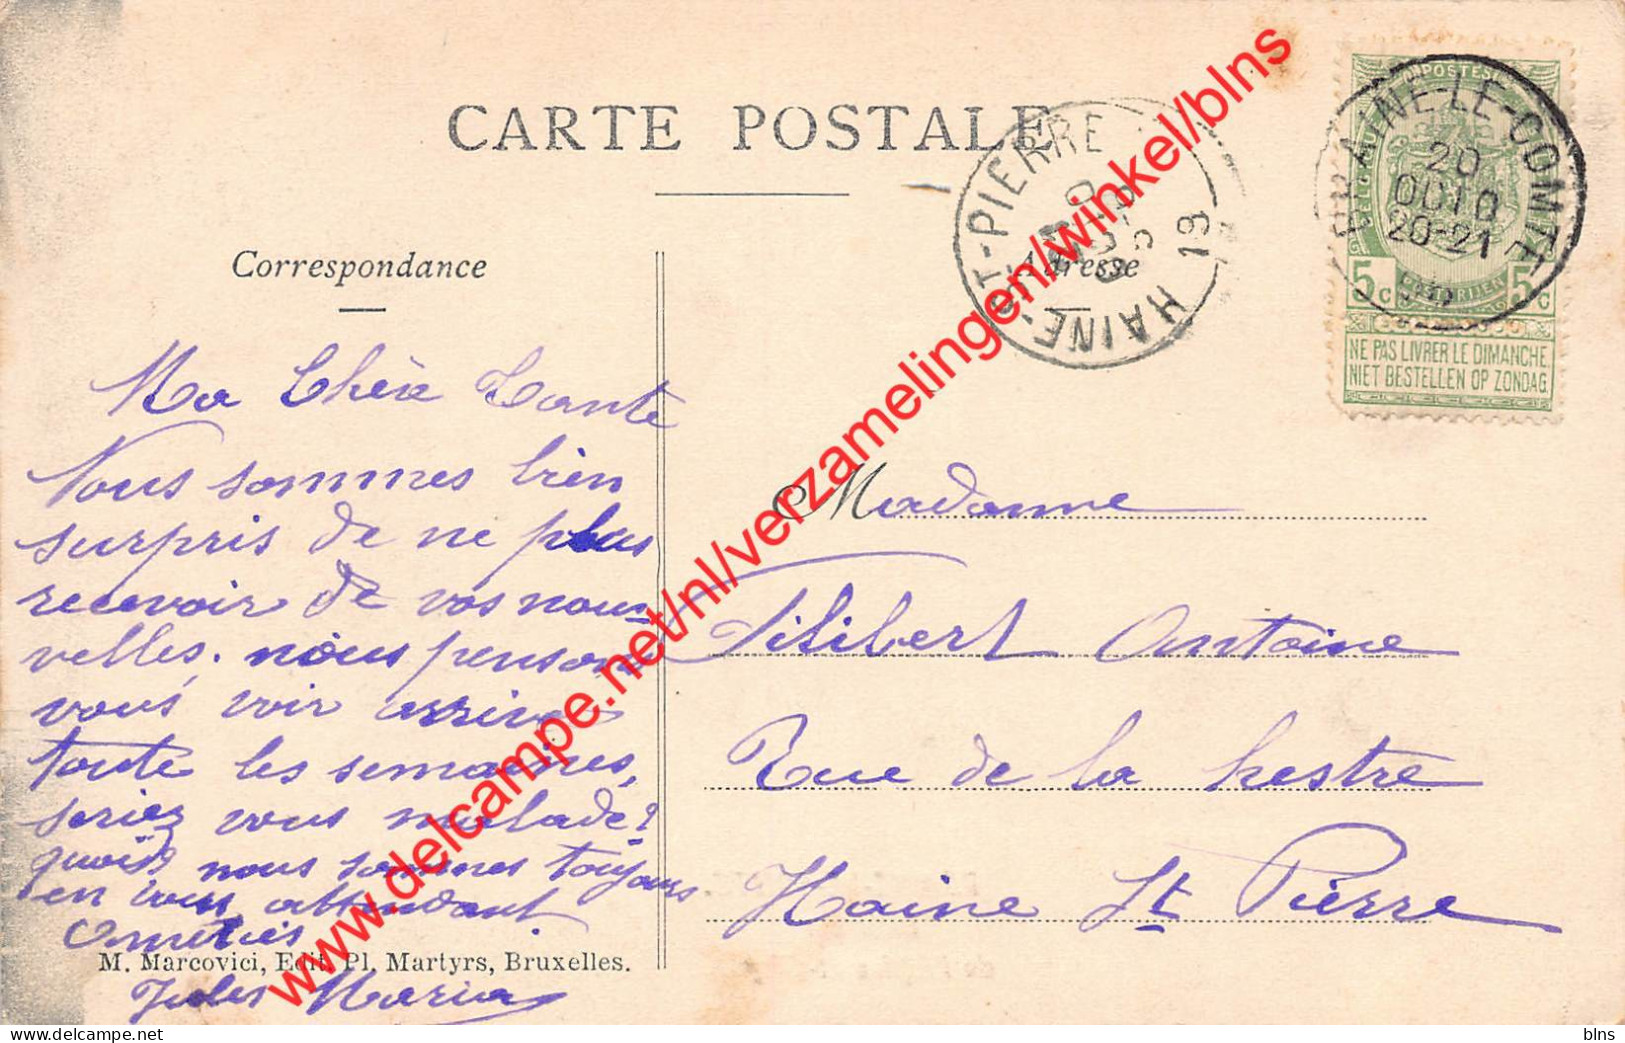 CARTE POSTALE
Correspondance
Adresse
Ma Chère Tante
Nous sommes bien
surpris de ne plus
recevoir de vos nou-
velles. nous pensons
vous voir arriver
toute les semaines,
seriez vous malade?
nous sommes toujours
en vous attendant
Amitiés
M. Marcovici, Edit. Pl. Martyrs, Bruxelles.
Jules Maria
Madame
Filibert Antoine
Rue de la hestre
Haine St Pierre
HAINE-ST-PIERRE
BRAINE-LE-COMTE
20
OCT
20-21
POSTES
5c 5c
NE PAS LIVRER LE DIMANCHE
NIET BESTELLEN OP ZONDAG
www.delcampe.net/nl/verzamelingen/winkel/blns
blns